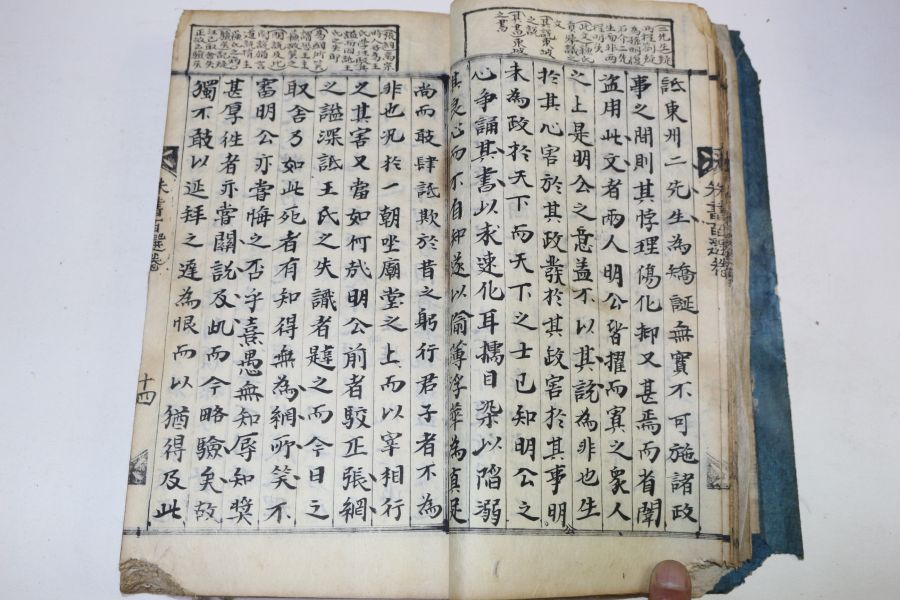 詆東州二先生為矯誕無實不可施諸政
事之間則其悖理傷化抑又甚焉而省闈
盜用此文者兩人明公皆擢而寘之衆人
之上是明公之意盖不以其說為非也生
於其心害於其政發於其政害於其事明
公
未為政於天下而天下之士已知明公之
心爭誦其書以求速化耳擩目染以陷溺
其良心而不自知遂以偷薄浮華為真足
尚而敢肆詆欺於昔之躬行君子者不為
非也况於一朝坐廟堂之上而以宰相行
之其害又當如何哉明公前者駮正張綱
之謚深詆王氏之失識者韙之而今日之
取舍乃如此死者有知得無為綱所笑不
審明公亦嘗悔之否乎熹愚無知辱知奬
甚厚往者亦嘗關說及此而今略驗矣故
獨不敢以延拜之遲為恨而以猶得及此
朱書百選卷
十四
朱書百選卷